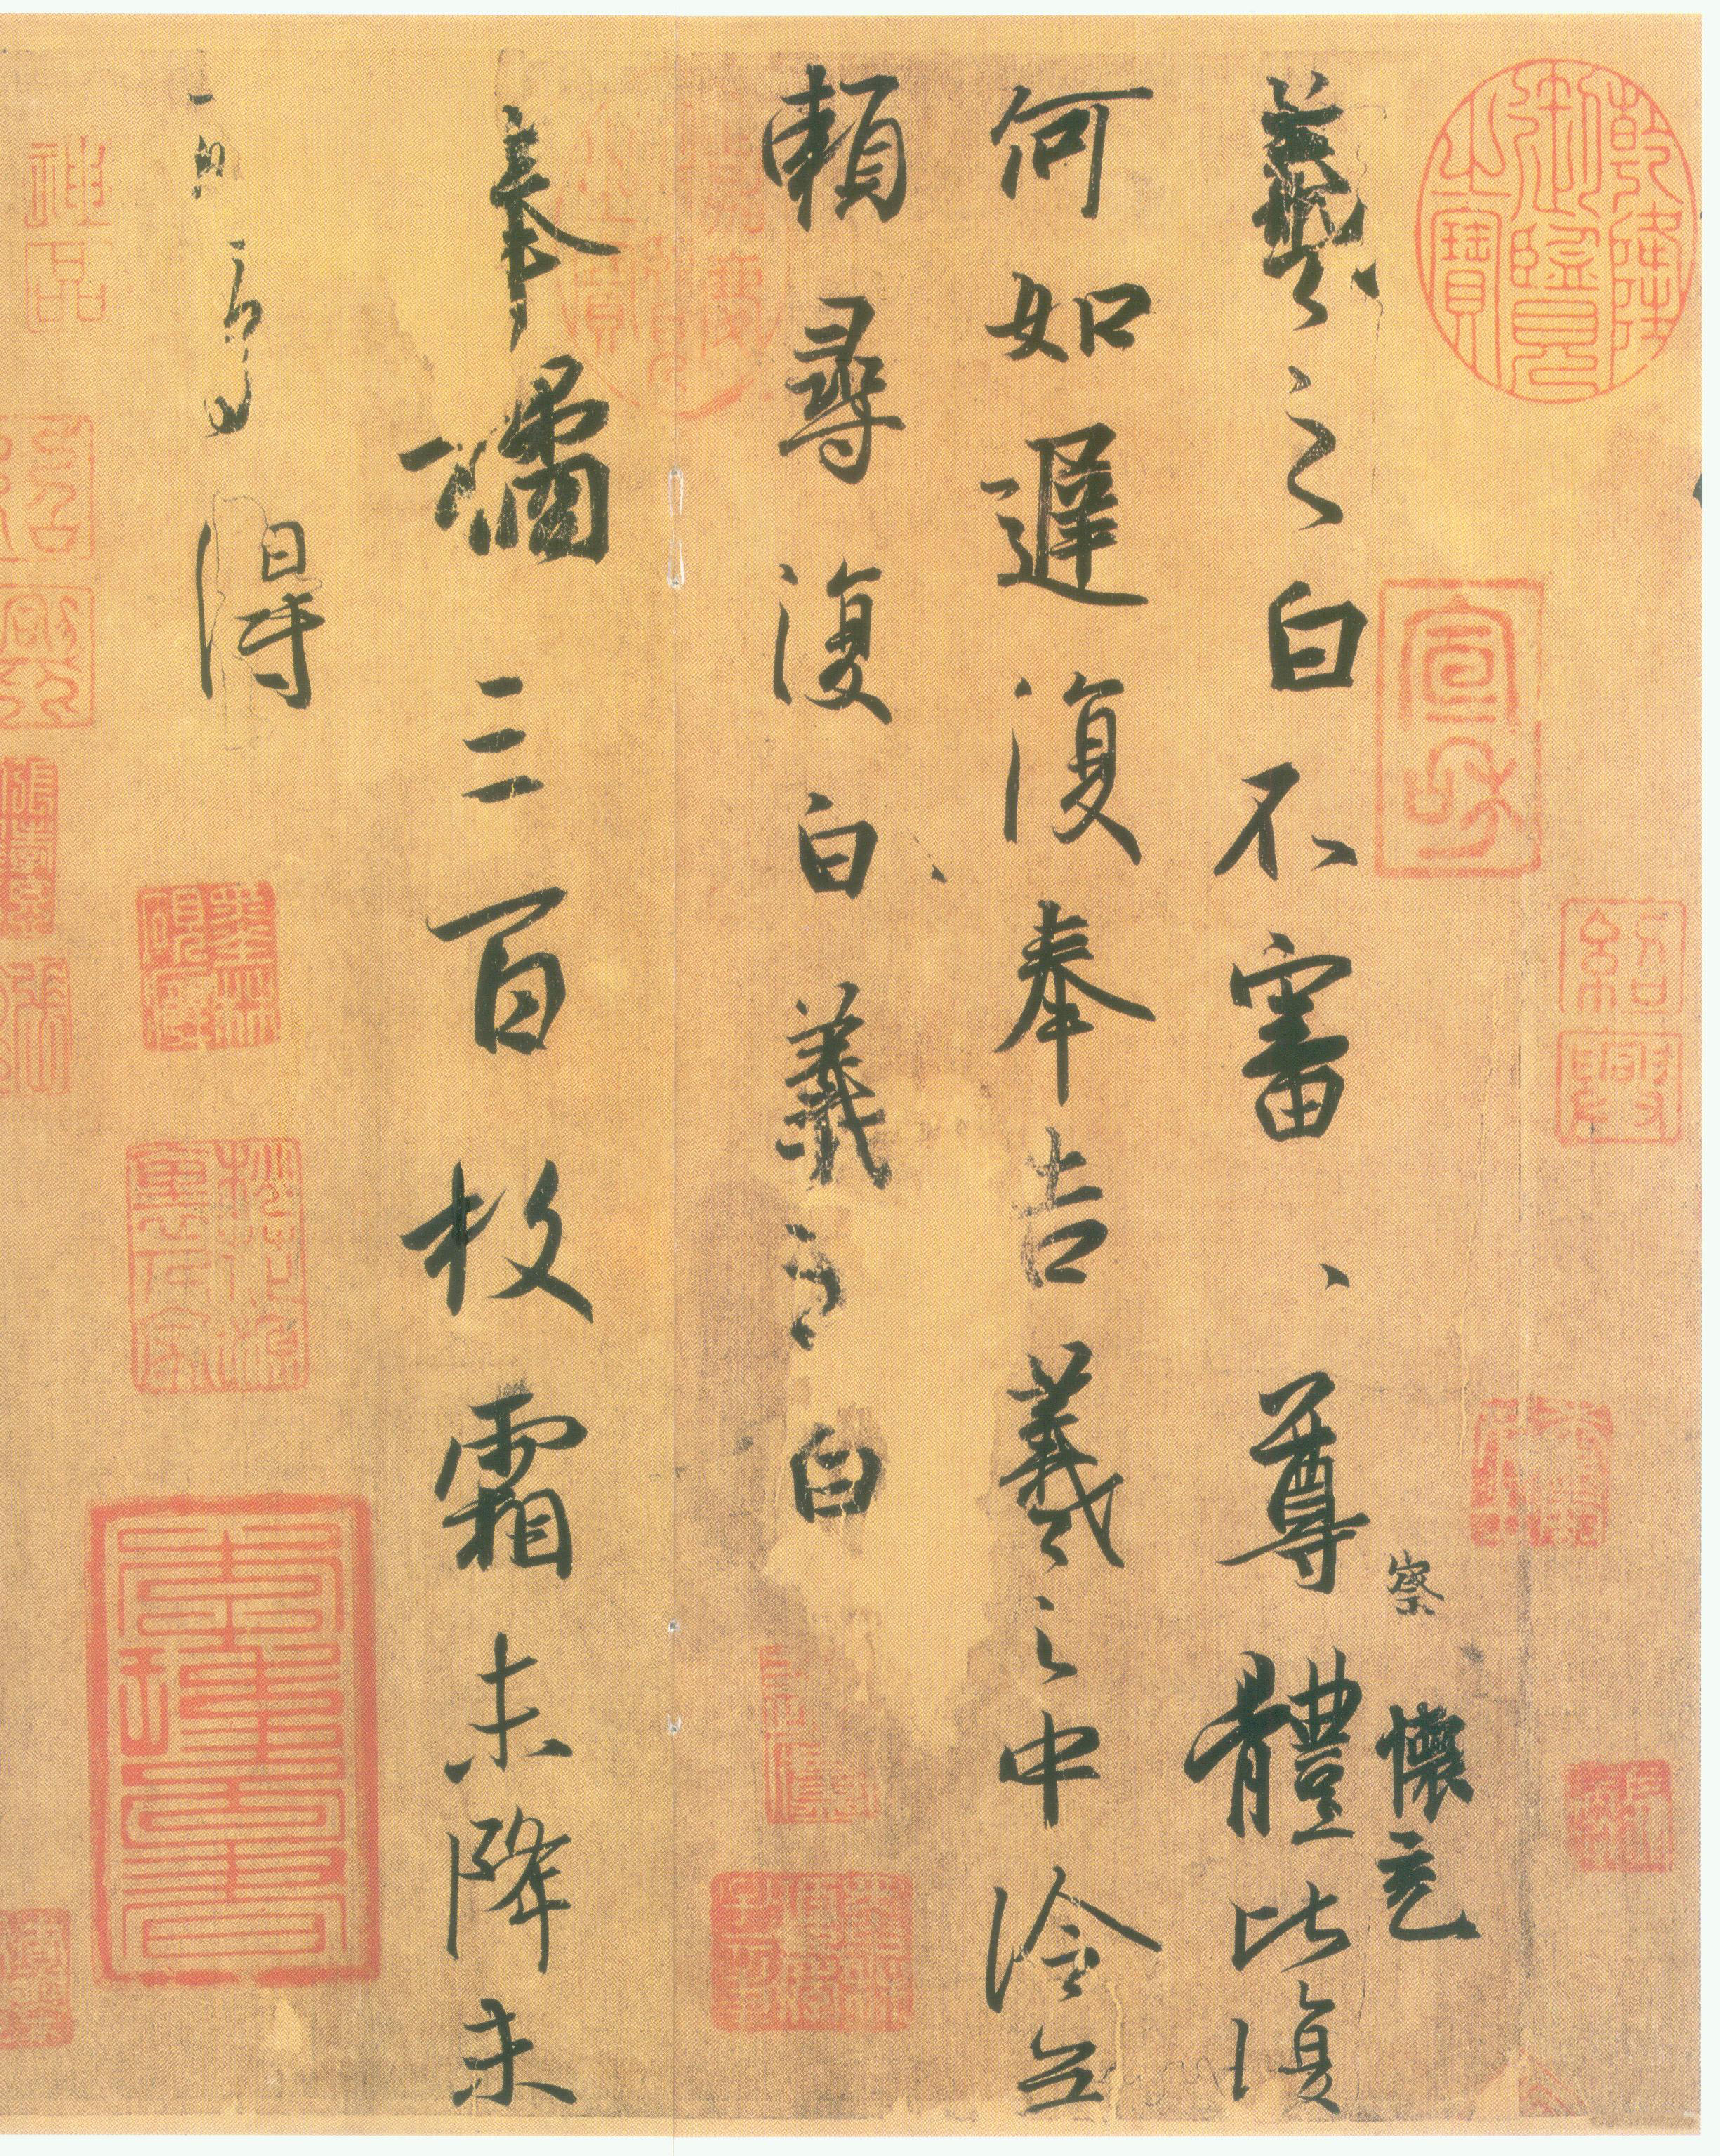 乾隆御覽之寶
宣和
紹興
察
懷充
羲之白不審、尊體比復
何如遲復奉告羲之中冷無
賴尋復白羲之白
嘉慶御覽之寶
奉橘三百枚霜未降未
可多得
神品